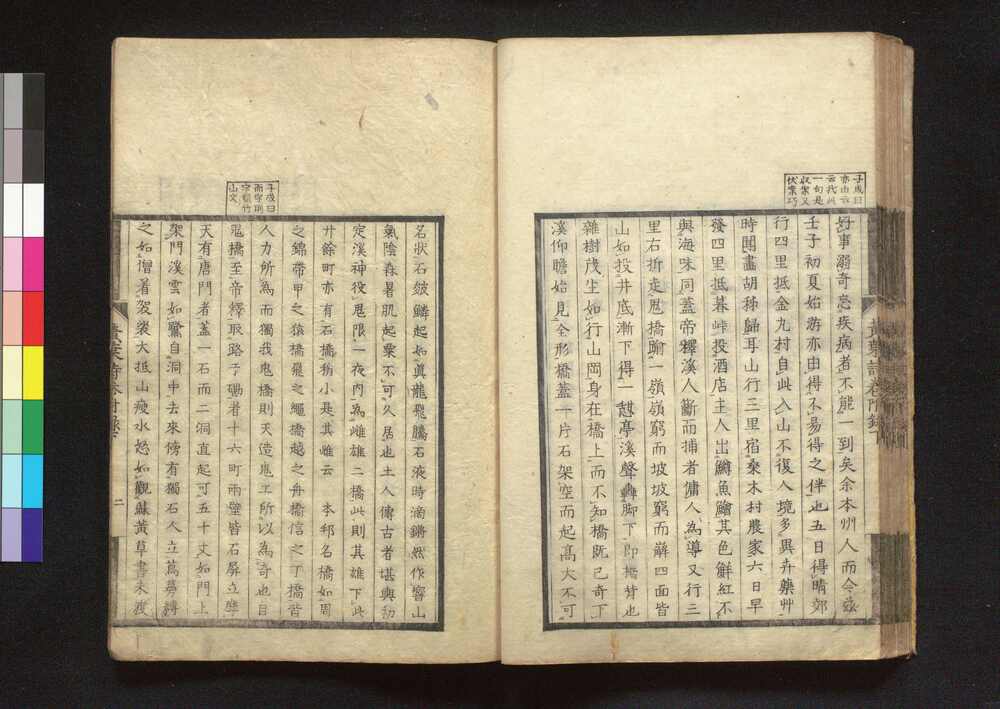 子成曰
亦由亦
一句是
伏案巧
好事溺奇忘疾病者不能一到矣余本州人而今玆
壬子初夏始游亦由得不易得之伴也五日得晴郊
行四里抵金九村自此入山不復人境多異卉藥艸
時開畫胡秫歸耳山行三里宿粟木村農家六日早
發四里抵暮峠投酒店主人出鱒魚鱠其色鮮紅不
與海味同蓋帝釋溪人斷而捕者傭人為導又行三
里右折走鬼橋踰一嶺嶺窮而坡坡窮而澼四面皆
山如投井底漸下得一憩亭溪聲轟脚下即橋背也
雜樹茂生如行山岡身在橋上而不知橋既已奇丁
溪仰瞻始見全形橋蓋一片石架空而起高大不可
黃葉詩卷附錄下
子成曰
山文
名狀石皴鱗起如真龍飛騰石液時滴鏘然作響山
氣陰森暑肌起粟不可久居也土人傳古者甚輿初
定溪神役鬼限一夜內為雌雄二橋此則其雄下此
廾餘町亦有石橋稍小是其雌云 本邦名橋如周
之錦帶甲之猿橋飛之繩橋越之舟橋信之丁橋皆
人力所為而獨我鬼橋則天造鬼工所以為奇也自
鬼橋至帝釋取路于磵者十六町兩壁皆石屏立摩
天有唐門者蓋一石而二洞直起可五十丈如門上
架門溪雲如鷺自洞中去來傍有獨石人立蔦蘿縛
之如僧着袈裟大抵山瘦水怒如觀蘇黃草書未痩
黃葉詩卷附錄下 二